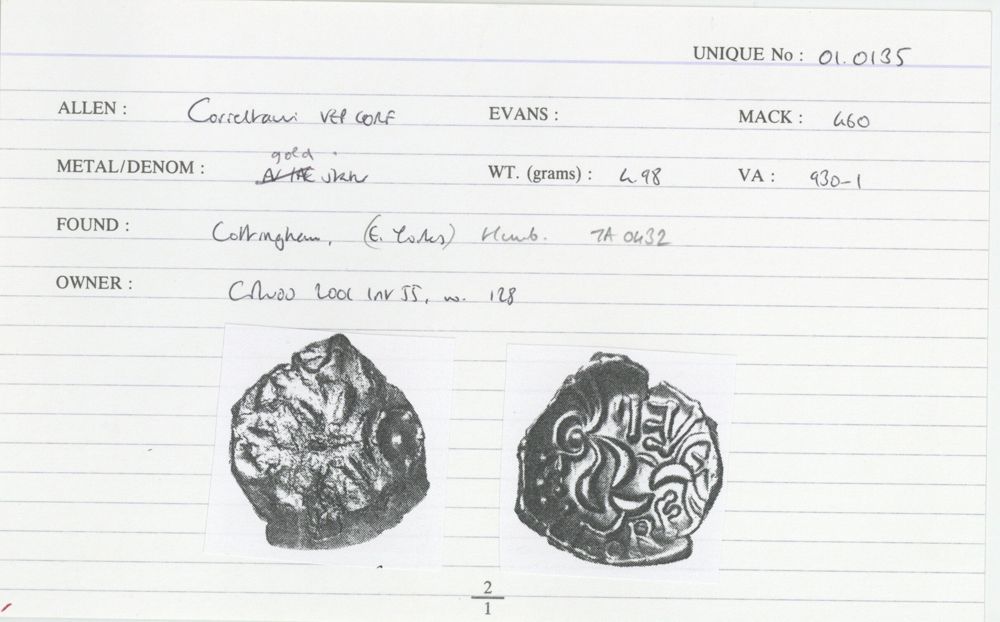 UNIQUE No : 01.0135
ALLEN : Corieltauvi VEP CORF EVANS : MACK : 460
gold
METAL/DENOM : stater WT. (grams) : 4.98 VA : 930-1
FOUND : Cottingham, (E. Yorks) Humb. TA 0432
OWNER : 2001 no. 128
2
1